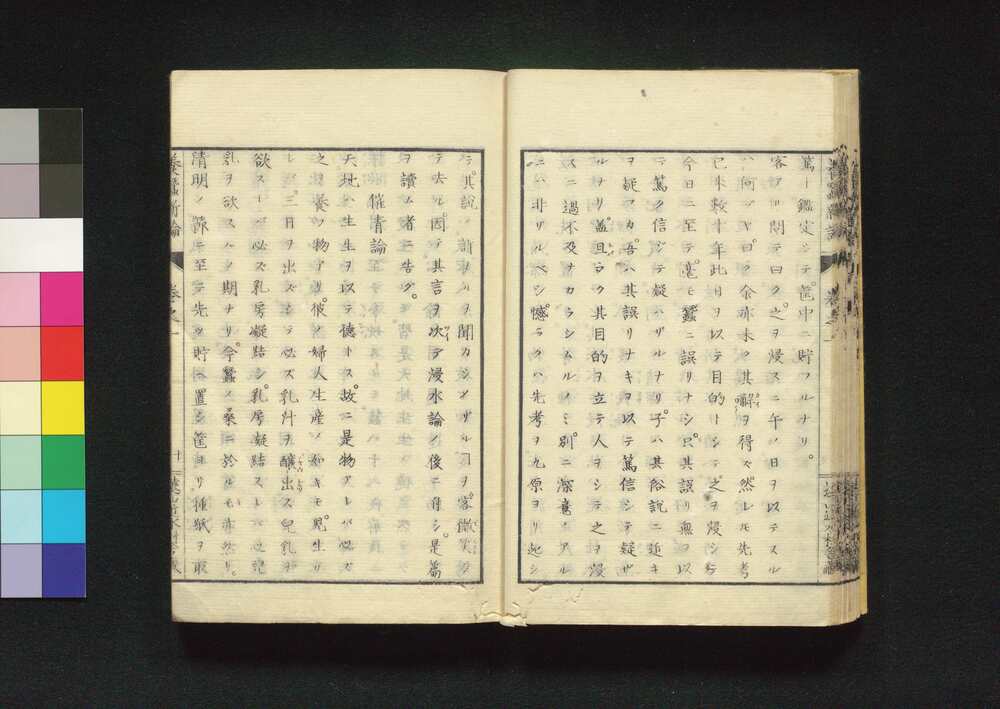 篤ト鑑定シテ筐中ニ貯フルナリ。
客アリ問テ曰ク。之ヲ浸スニ午ノ日ヲ以テスル
ハ何ゾヤ。曰ク余亦未タ其解ヲ得ズ然レモ先考
已来數十年此日ヲ以テ目的トシテ之ヲ浸シ
今日ニ至テ毫モ蠶ニ誤リナシ。只其誤リ無ヲ以
テ篤ク信ジテ疑ハザルナリ。子ハ其俗説ニ近キ
ヲ疑フカ。吾ハ其誤リナキヲ以テ篤信シテ疑ザ
ルナリ。蓋且ラク其目的ヲ立テ人ヲシテ之ヲ浸
スニ過不及ナカラシムルノミ。別ニ深意ノアル
ニハ非ザルベシ。憾ラクハ先考ヲ九原ヨリ起シ
テ其説ノ詳ナルヲ聞カシメザルヿヲ。客微笑シ
テ去ル。因テ其言ヲ次テ浸水論ノ後ニ附シ。是篇
ヲ讀ム者ニ告グ。
催青論
天地ハ生生ヲ以テ德トス。故ニ是物アレバ必ズ
之ヲ養フ物アリ。彼ノ婦人生産ノ如キモ。兒生
レ三日ヲ出ズシテ必ズ乳汁ヲ釀出ス。兒乳ヲ
欲スレバ必ズ乳房凝結シ。乳房凝結スレバ必兒
乳ヲ欲スルノ期ナリ。今蠶ノ桑ニ於ルモ亦然リ。
清明ノ節ニ至テ先ツ貯ヘ置シ筐ヨリ種紙ヲ取
養蠶新論 卷之一